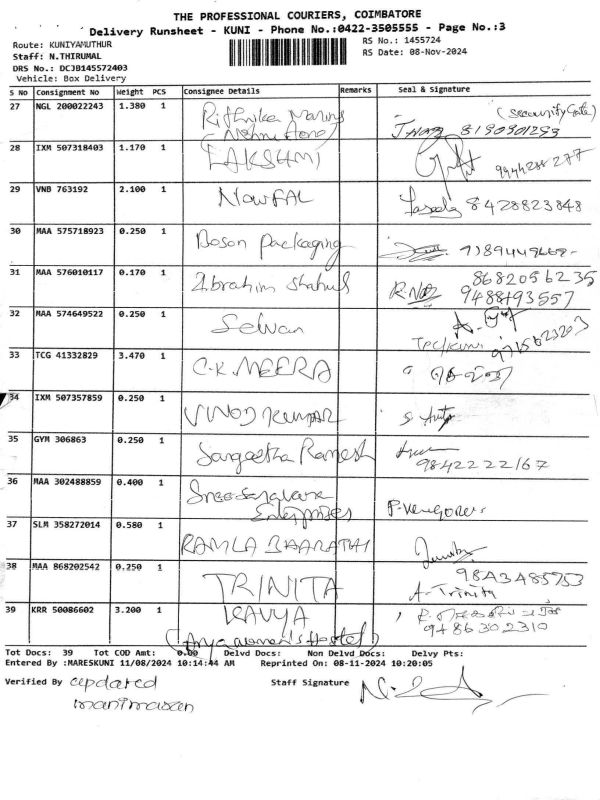 THE PROFESSIONAL COURIERS, COIMBATORE
Delivery Runsheet - KUNI - Phone No.:0422-3505555 - Page No.:3
Route: KUNIYAMUTHUR
RS No.: 1455724
Staff: N.THIRUMAL
RS Date: 08-Nov-2024
DRS No.: DCJB145572403
Vehicle: Box Delivery
S No Consignment No Weight PCS Consignee Details Remarks Seal & Signature
27 NGL 200022243 1.380 1 Rithika (Security Gate)
8190901293
28 IXM 507318403 1.170 1 LAKSHMI
9944288277
29 VNB 763192 2.100 1 NowFAL 8428823848
30 MAA 575718923 0.250 1 Boson Packaging
31 MAA 576010117 0.170 1 Ibrahim Shahul 8682056235
9488193557
32 MAA 574649522 0.250 1 Selvan
9715623203
33 TCG 41332829 3.470 1 C.K. MEERA
34 IXM 507357859 0.250 1 VINOD KUMAR
35 GYM 306863 0.250 1 Sangeetha Ramesh
9842222167
36 MAA 302488859 0.400 1
Enterprises
37 SLM 358272014 0.580 1 RAMLA BHARATHI
38 MAA 868202542 0.250 1 TRINITA 9843485753
A-Trinita
39 KRR 50086602 3.200 1 KAVYA
(Arya women's Hostel) 9486302310
Tot Docs: 39 Tot COD Amt: 0.00 Delvd Docs: Non Delvd Docs: Delvy Pts:
Entered By :MARESKUNI 11/08/2024 10:14:44 AM Reprinted On: 08-11-2024 10:20:05
Verified By updated Staff Signature
manimaran